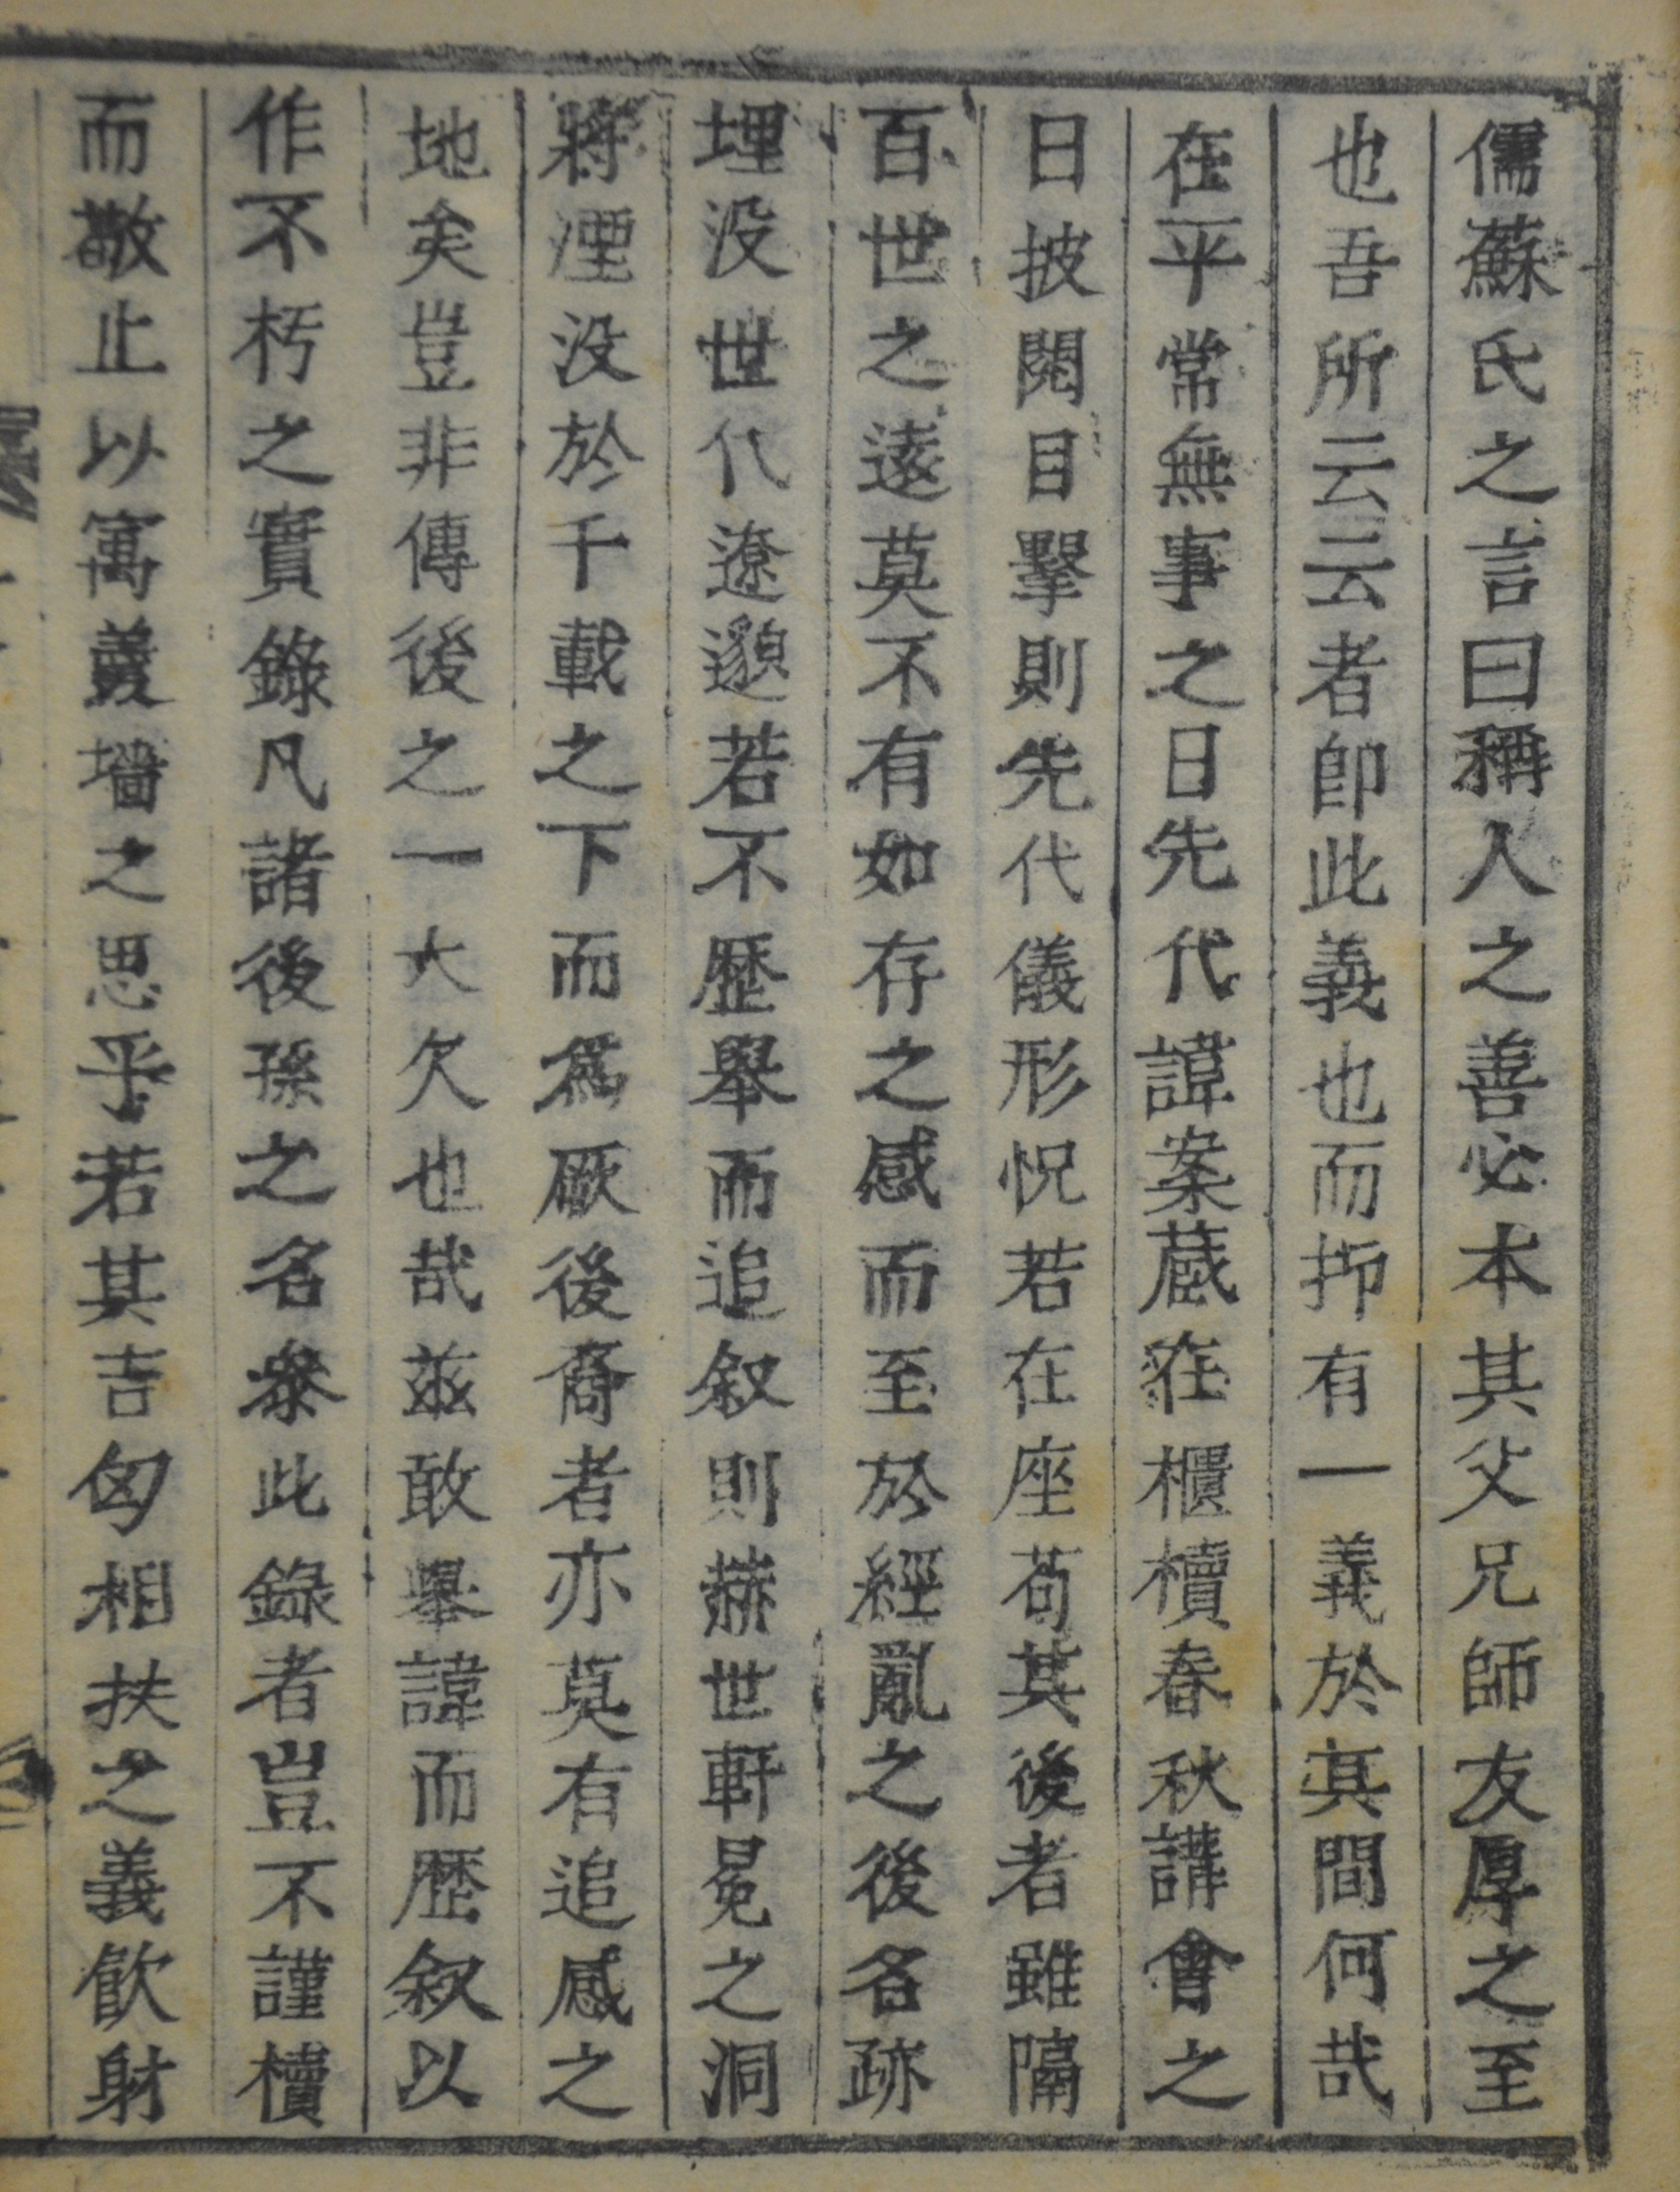 儒蘇氏之言曰稱人之善必本其父兄師友厚之至
也吾所云云者卽此義也而抑有一義於其間何哉
在平常無事之日先代諱案蔵在櫃櫝春秋講會之
日披閱目擊則先代儀形怳若在座苟其後者雖隔
百世之遠莫不有如存之感而至於經亂之後名跡
埋没世代遼邈若不歷舉而追叙則赫世軒冕之洞
將湮没於千載之下而爲厥後裔者亦莫有追感之
地矣豈非傳後之一大欠也哉兹敢舉諱而歷叙以
作不朽之實錄凡諸後孫之名叅此錄者豈不謹櫝
而敬止以寓羹墻之思乎若其吉匈相扶之義飮射